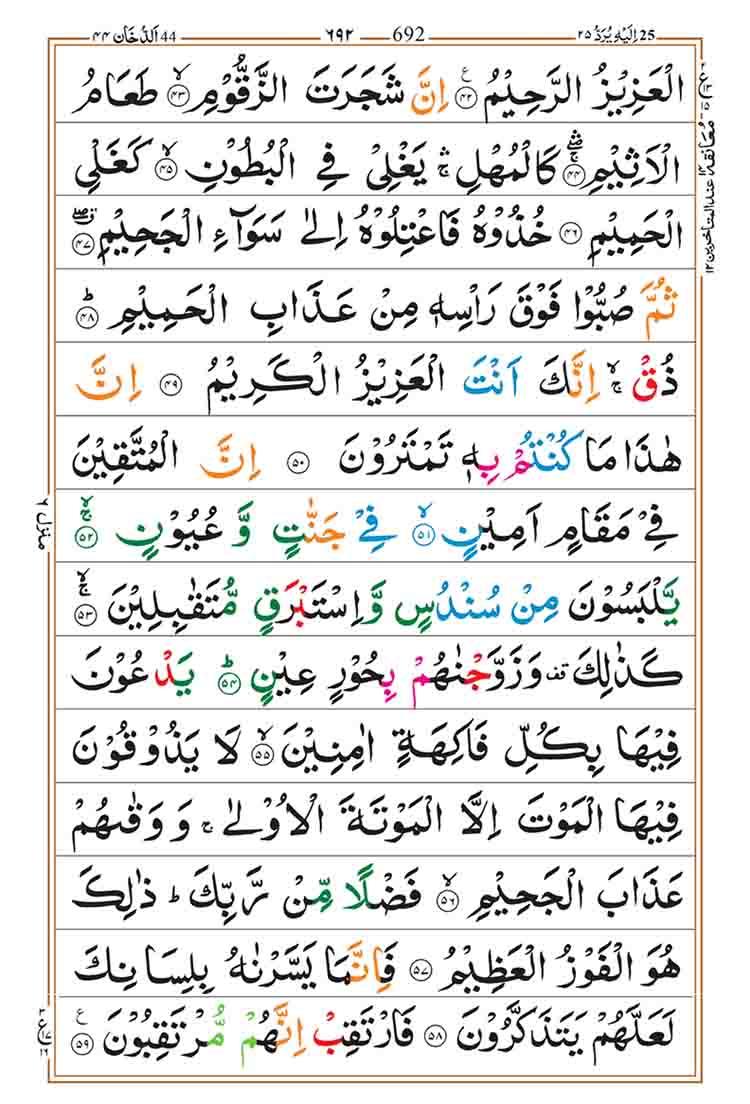 25 اِلَيْهِ يُرَدُّ ٢٥ 692 ٦٩٢ 44 اَلدُّخَان ٤٤
الْعَزِيْزُ الرَّحِيْمُ ﴿٤٢﴾ ع اِنَّ شَجَرَتَ الزَّقُّوْمِ ﴿٤٣﴾ۙ طَعَامُ
الْاَثِيْمِ ﴿٤٤﴾ۛۖۚ كَالْمُهْلِ ۛۚ يَغْلِىْ فِى الْبُطُوْنِ ﴿٤٥﴾ۙ كَغَلْىِ
الْحَمِيْمِ ﴿٤٦﴾ خُذُوْهُ فَاعْتِلُوْهُ اِلٰى سَوَآءِ الْجَحِيْمِ ﴿٤٧﴾ۖق
ثُمَّ صُبُّوْا فَوْقَ رَاْسِهٖ مِنْ عَذَابِ الْحَمِيْمِ ﴿٤٨﴾ؕ
ذُقْ ۙۚ اِنَّكَ اَنْتَ الْعَزِيْزُ الْكَرِيْمُ ﴿٤٩﴾ اِنَّ
هٰذَا مَا كُنْتُمْ بِهٖ تَمْتَرُوْنَ ﴿٥٠﴾ اِنَّ الْمُتَّقِيْنَ
فِىْ مَقَامٍ اَمِيْنٍ ﴿٥١﴾ۙ فِىْ جَنّٰتٍ وَّ عُيُوْنٍ ﴿٥٢﴾ۙۚ
يَّلْبَسُوْنَ مِنْ سُنْدُسٍ وَّاِسْتَبْرَقٍ مُّتَقٰبِلِيْنَ ﴿٥٣﴾ۙۚ
كَذٰلِكَ قف وَزَوَّجْنٰهُمْ بِحُوْرٍ عِيْنٍ ﴿٥٤﴾ؕ يَدْعُوْنَ
فِيْهَا بِكُلِّ فَاكِهَةٍ اٰمِنِيْنَ ﴿٥٥﴾ۙ لَا يَذُوْقُوْنَ
فِيْهَا الْمَوْتَ اِلَّا الْمَوْتَةَ الْاُوْلٰى ۚ وَوَقٰىهُمْ
عَذَابَ الْجَحِيْمِ ﴿٥٦﴾ۙ فَضْلًا مِّنْ رَّبِّكَ ؕ ذٰلِكَ
هُوَ الْفَوْزُ الْعَظِيْمُ ﴿٥٧﴾ فَاِنَّمَا يَسَّرْنٰهُ بِلِسَانِكَ
لَعَلَّهُمْ يَتَذَكَّرُوْنَ ﴿٥٨﴾ فَارْتَقِبْ اِنَّهُمْ مُّرْتَقِبُوْنَ ﴿٥٩﴾ ع
معانقة ١٢ عند المتاخرين ١٢
منزل ٦